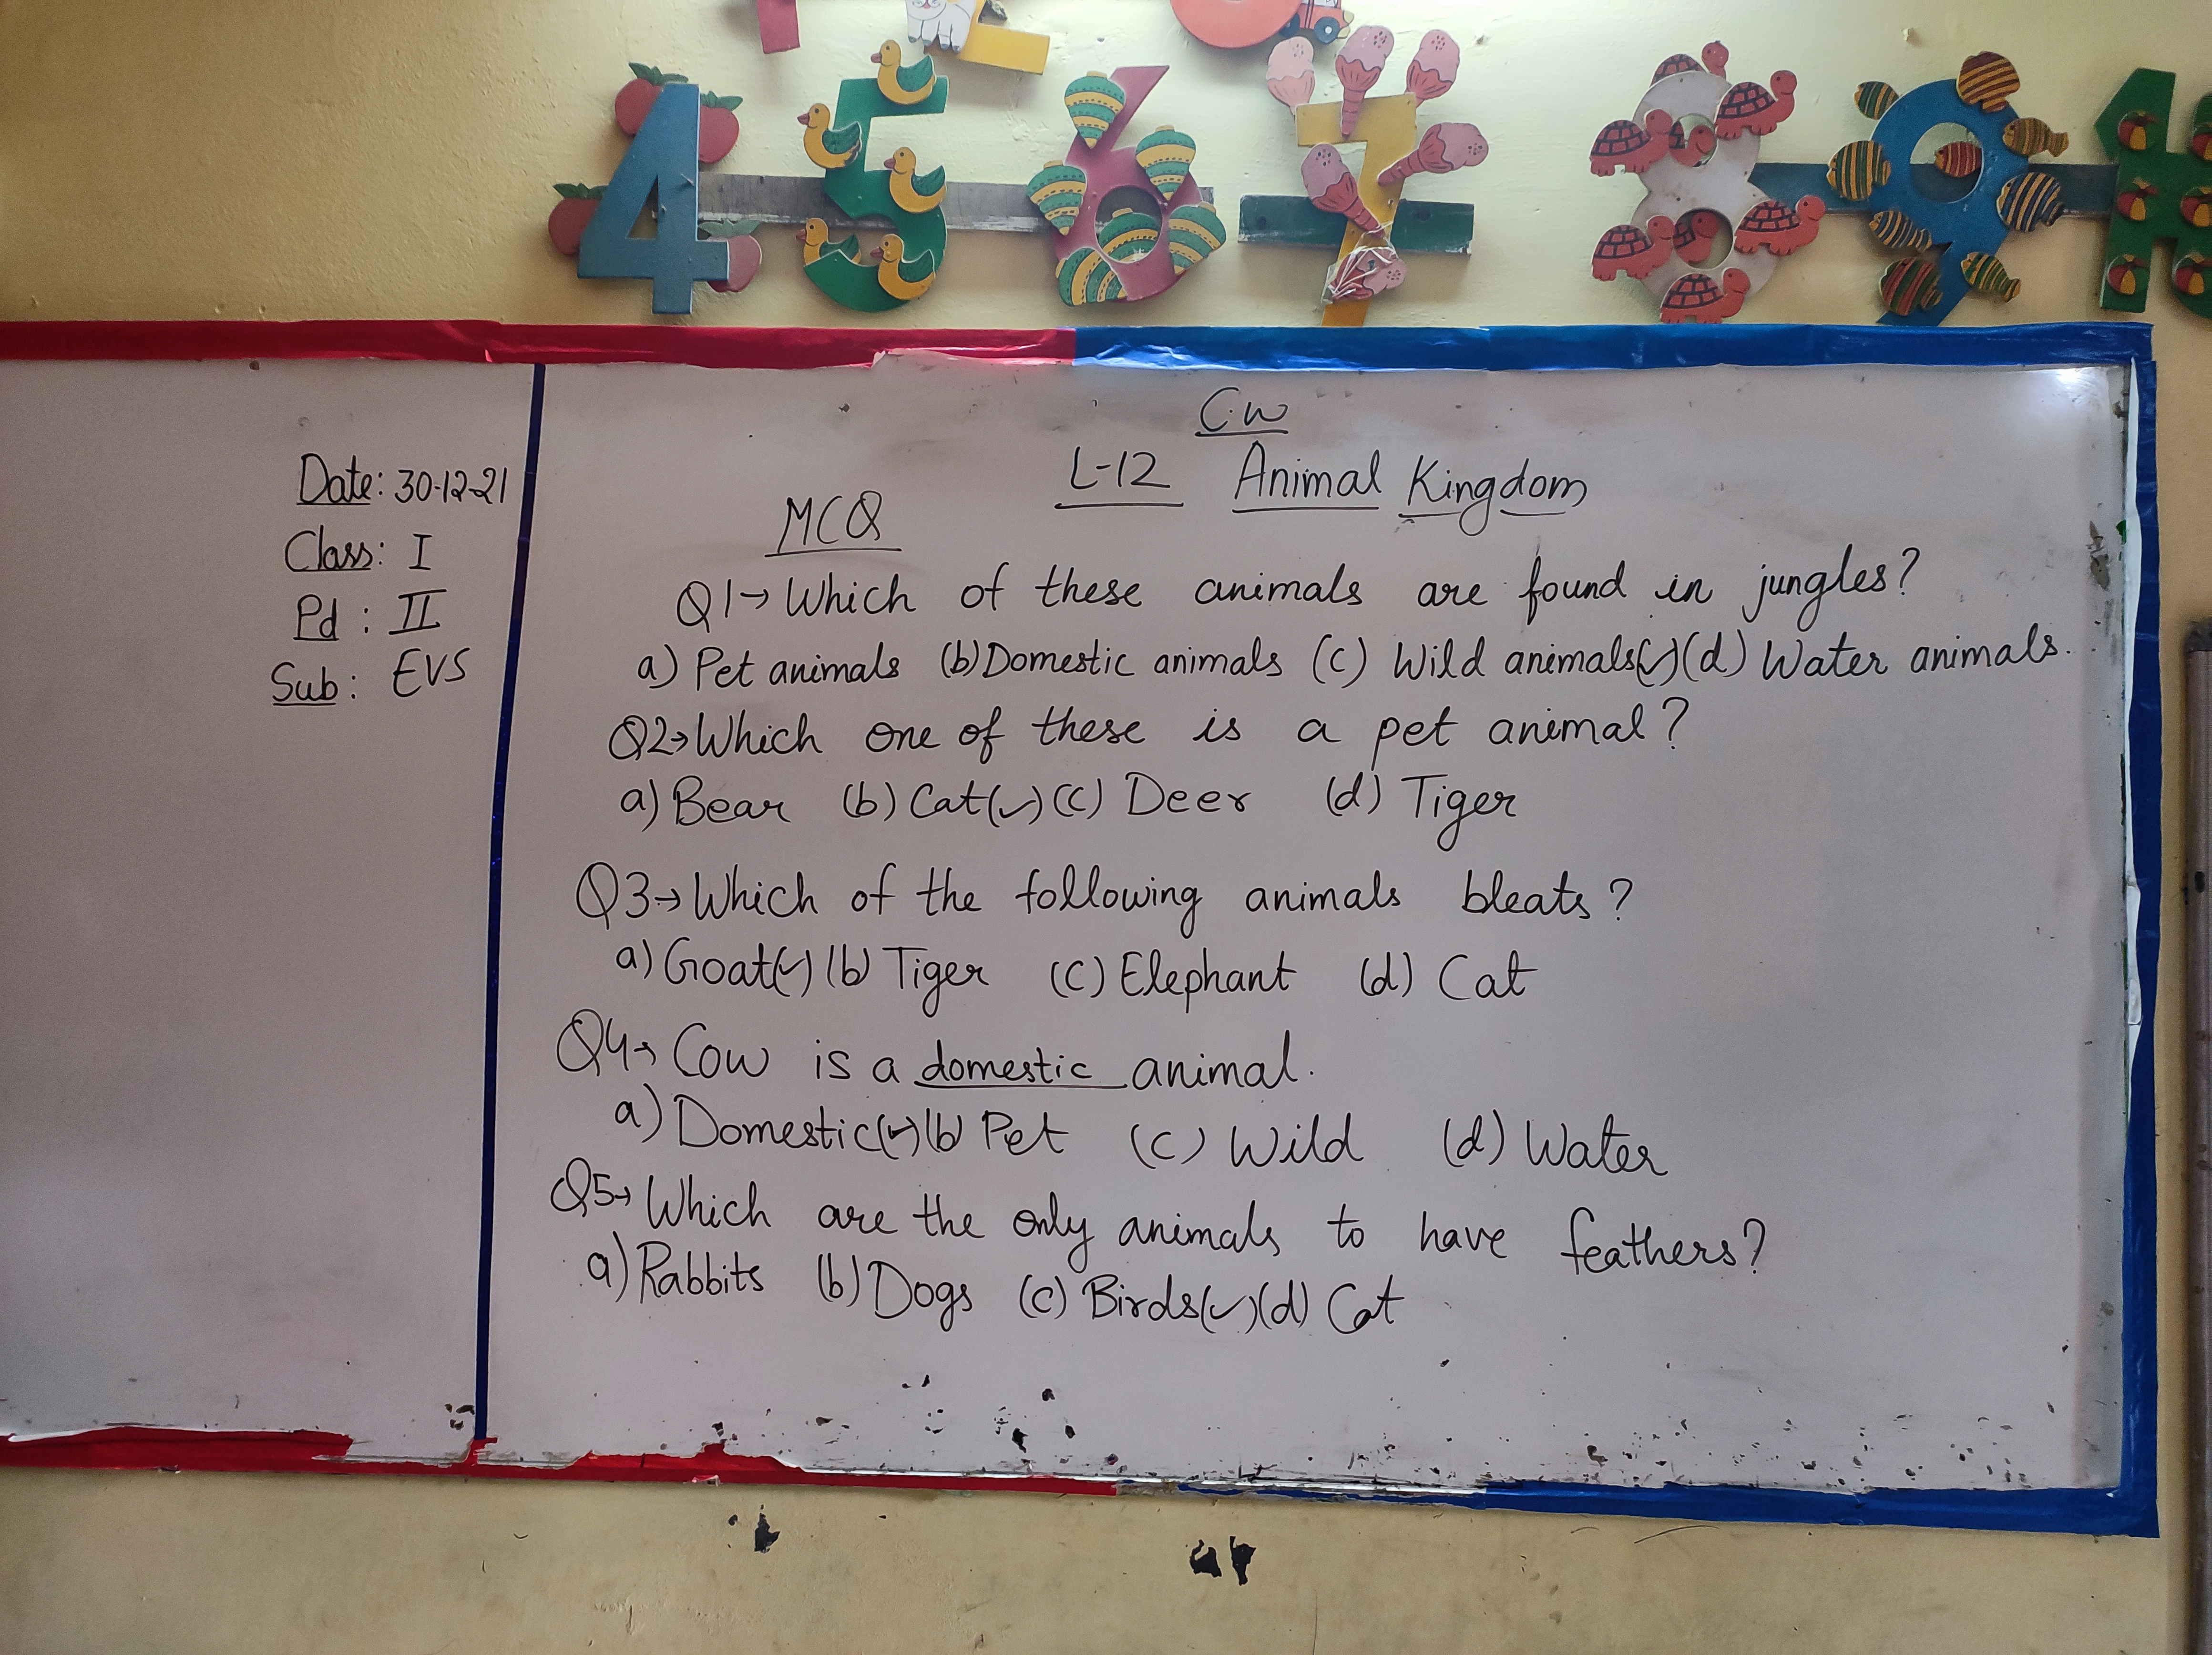 4 5 6 7 8 9
Date: 30-12-21
Class: I
Pd : II
Sub: EVS
C.W
L-12 Animal Kingdom
MCQ
Q1→ Which of these animals are found in jungles?
a) Pet animals (b) Domestic animals (c) Wild animals(✓) (d) Water animals.
Q2→ Which one of these is a pet animal?
a) Bear (b) Cat(✓) (c) Deer (d) Tiger
Q3→ Which of the following animals bleats?
a) Goat(✓) (b) Tiger (c) Elephant (d) Cat
Q4→ Cow is a domestic animal.
a) Domestic(✓) (b) Pet (c) Wild (d) Water
Q5→ Which are the only animals to have feathers?
a) Rabbits (b) Dogs (c) Birds(✓) (d) Cat